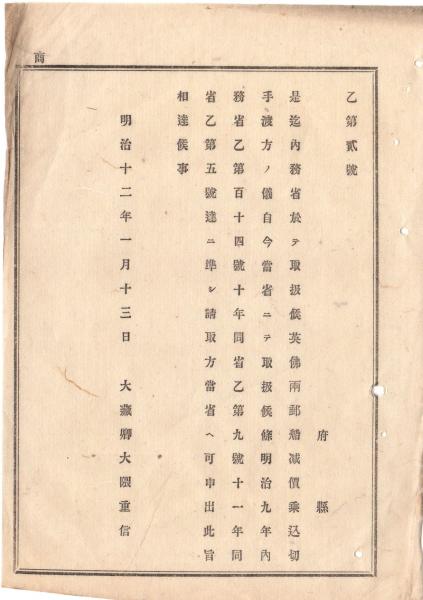 商
乙第貳號
府縣
是迄內務省於テ取扱候英佛兩郵船减價乘込切
手渡方ノ儀自今當省ニテ取扱候條明治九年內
務省乙第百十四號十年同省乙第九號十一年同
省乙第五號達ニ準シ請取方當省ヘ可申出此旨
相達候事
明治十二年一月十三日 大藏卿大隈重信